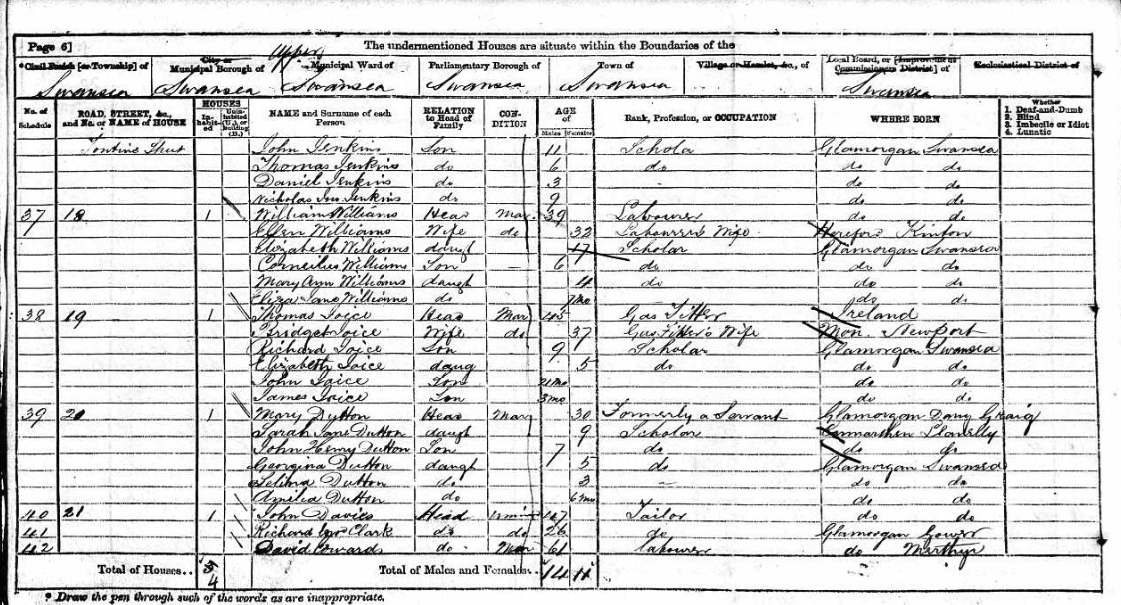 Page 6] The undermentioned Houses are situate within the Boundaries of the
*Civil Parish [or Township] of City or Municipal Borough of Upper Municipal Ward of Parliamentary Borough of Town of Village or Hamlet, &c., of Local Board, or [Improvement Commissioners District] of Ecclesiastical District of
Swansea Swansea Swansea Swansea Swansea Swansea
No. of Schedule ROAD, STREET, &c., and No. or NAME of HOUSE HOUSES Inhabited Uninhabited (U.), or Building (B.) NAME and Surname of each Person RELATION to Head of Family CONDITION AGE of Males Females Rank, Profession, or OCCUPATION WHERE BORN Whether 1. Deaf-and-Dumb 2. Blind 3. Imbecile or Idiot 4. Lunatic
John Jenkins Son 11 Schola Glamorgan Swansea
Thomas Jenkins do 6 do do do
Daniel Jenkins do 3 - do do
Nicholas Jenkins do 9 do do
37 18 1 William Williams Head Mar. 39 Labourer do do
Ellen Williams Wife do 32 Labourers Wife Hereford Kinton
Elizabeth Williams daugh 17 Scholar Glamorgan Swansea
Cornelius Williams Son — 6 do do do
Mary Ann Williams daugh 4 do do do
Eliza Jane Williams do 7mo do do
38 19 1 Thomas Joice Head Mar 45 Gas Fitter Ireland
Bridget Joice Wife do 37 Gas Fitter's Wife Mon. Newport
Richard Joice Son 9 Scholar Glamorgan Swansea
Elizabeth Joice daug 5 do do do
John Joice Son 21mo do do
James Joice Son 3mo do do
39 20 1 Mary Dutton Head Mar 30 Formerly a Servant Glamorgan Dany Graig
Sarah Jane Dutton daugh 9 Scholar Carmarthen Llanelly
John Henry Dutton Son 7 do do do
Georgina Dutton daugh 5 do Glamorgan Swansea
Selina Dutton do 3 — do do
Amilia Dutton do 6mo do do
40 21 1 John Davies Head 47 Tailor do do
41 Richard Clark do do 26 do Glamorgan Gower
42 David Edwards do Mar 61 labourer do Merthyr
Total of Houses.. 4 Total of Males and Females.. 14 11
* Draw the pen through such of the words as are inappropriate.